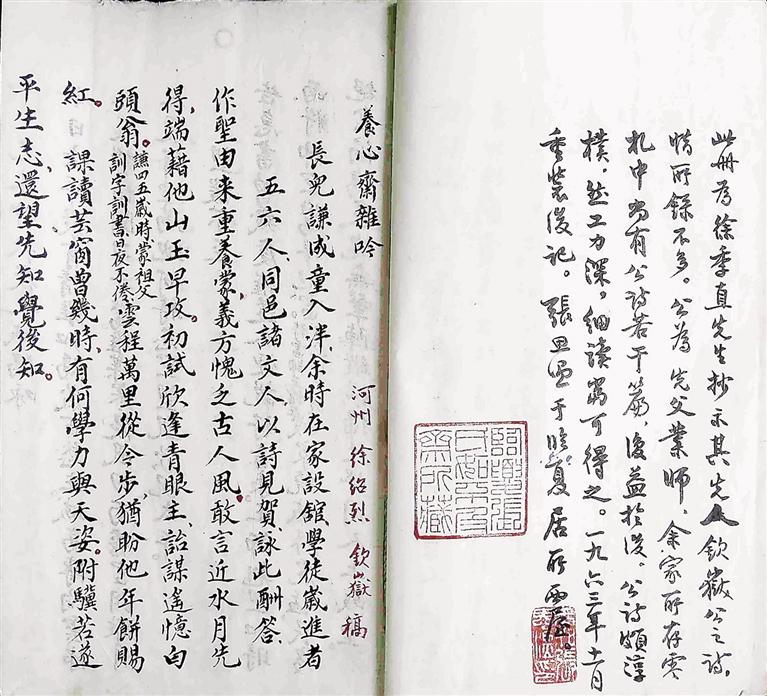 此册为徐季直先生抄示其先人钦嶽公之诗,
惜所録不多。公为先父業师,余家所存零
札中尚有公诗若干篇,後益於後。公诗頗淳
樸,然工力深,細读當可得之。一九六三年十一月
重装後记。張思温于临夏居所西屋。
養心齋雜吟
河州 徐紹烈 欽嶽 稿
長兒謙成童入泮、余時在家設舘、學徒歲進者
五六人、同邑諸文人、以詩見賀、詠此酬答、
作聖由来重養蒙、義方愧乏古人風。敢言近水月先
得、端藉他山玉早攻。初試欣逢青眼主、詒謀遙憶白
頭翁。謙四五歲時蒙祖父訓字訓書日夜不倦 雲程萬里從今步、猶盼他年餅賜
紅。課讀芸窗曾幾時、有何學力與天姿。附驥若遂
平生志、還望先知覺後知。